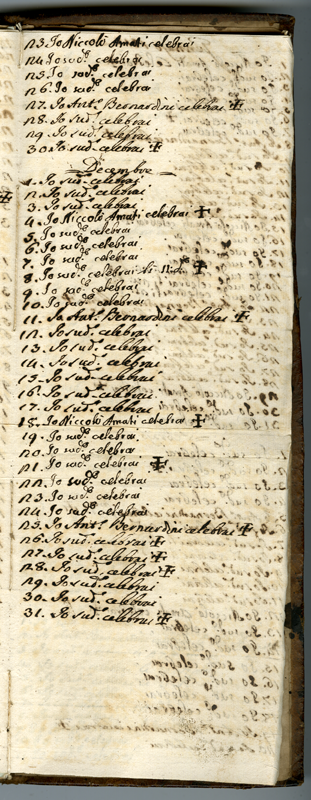 23. Io Niccolò Amati celebrai
24. Io sud.º celebrai
25. Io sud.º celebrai
26. Io sud.º celebrai
27. Io Ant.º Bernardini celebrai ✠
28. Io sud.º celebrai
29. Io sud.º celebrai
30. Io sud.º celebrai ✠
Decembre
1. Io sud.º celebrai
2. Io sud.º celebrai
3. Io sud.º celebrai
4. Io Niccolò Amati celebrai ✠
5. Io sud.º celebrai
6. Io sud.º celebrai
7. Io sud.º celebrai
8. Io sud.º celebrai ✠
9. Io sud.º celebrai
10. Io sud.º celebrai
11. Io Ant.º Bernardini celebrai ✠
12. Io sud.º celebrai
13. Io sud.º celebrai
14. Io sud.º celebrai
15. Io sud.º celebrai
16. Io sud.º celebrai
17. Io sud.º celebrai
18. Io Niccolò Amati celebrai ✠
19. Io sud.º celebrai
20. Io sud.º celebrai
21. Io sud.º celebrai ✠
22. Io sud.º celebrai
23. Io sud.º celebrai
24. Io sud.º celebrai
25. Io Ant.º Bernardini celebrai ✠
26. Io sud.º celebrai ✠
27. Io sud.º celebrai ✠
28. Io sud.º celebrai ✠
29. Io sud.º celebrai
30. Io sud.º celebrai
31. Io sud.º celebrai ✠